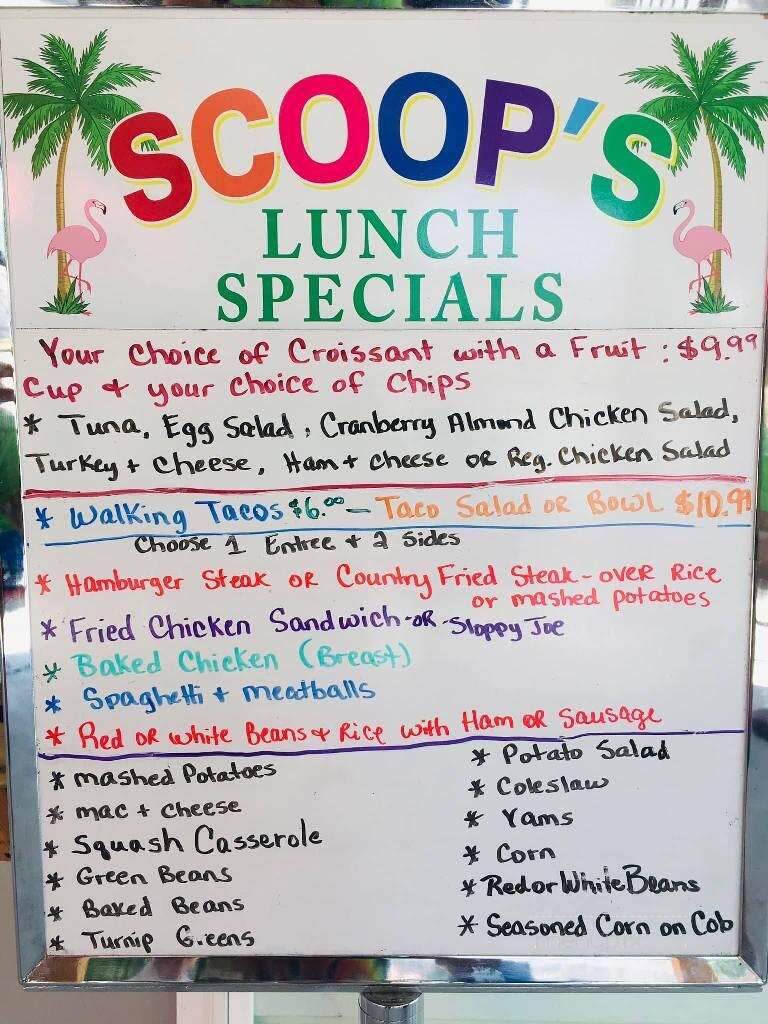 SCOOP'S
LUNCH
SPECIALS
Your Choice of Croissant with a Fruit : $9.99
Cup + your choice of Chips
* Tuna, Egg Salad, Cranberry Almond Chicken Salad,
Turkey + Cheese, Ham + cheese OR Reg. Chicken Salad
* Walking Tacos $6.00 - Taco Salad OR Bowl $10.99
Choose 1 Entree + 2 Sides
* Hamburger Steak OR Country Fried Steak - over Rice
or mashed potatoes
* Fried Chicken Sandwich - OR - Sloppy Joe
* Baked Chicken (Breast)
* Spaghetti + meatballs
* Red OR white Beans + Rice with Ham OR Sausage
* mashed Potatoes
* mac + cheese
* Squash Casserole
* Green Beans
* Baked Beans
* Turnip G.eens
* Potato Salad
* Coleslaw
* Yams
* Corn
* Red or White Beans
* Seasoned Corn on Cob